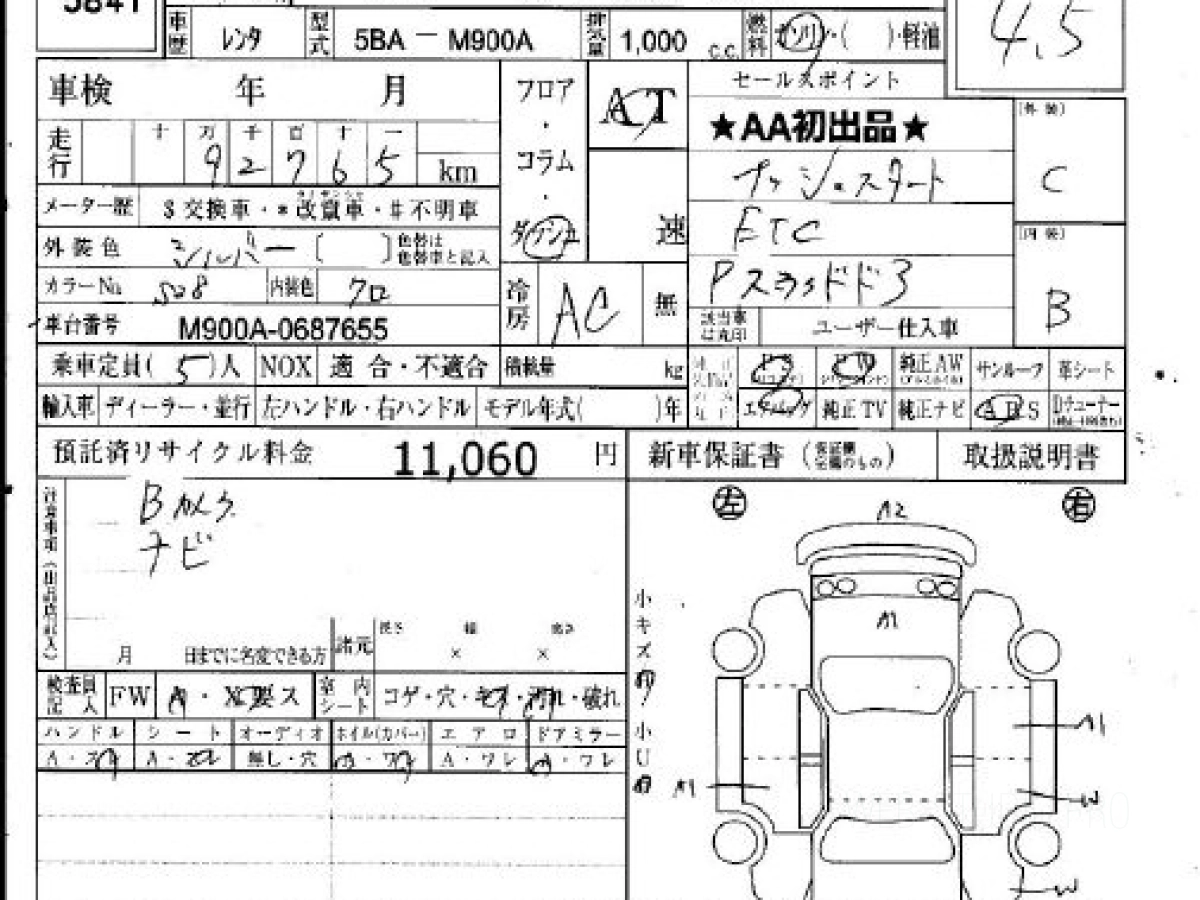 5841
車歴 レンタ 型式 5BA－M900A 排気量 1,000 c.c. 燃料 ガソリン・( )・軽油
4.5
車検 年 月
フロア・コラム・ダ
AT
速
セールスポイント
★AA初出品★
プッシュスタート
ETC
[外装] C
[内装] B
走行 十 万 千 百 十 一
9 2 7 6 5 km
メーター歴 $交換車・*改竄車・#不明車
外装色 シルバー [ ] 色替は色替車と記入
カラーNo. S28 内装色 クロ
冷房 AC 無
該当車は丸印 ユーザー仕入車
車台番号 M900A-0687655
乗車定員(5)人 NOX 適合・不適合 積載量 kg
PS PW 純正AW サンルーフ 革シート
輸入車 ディーラー・並行 左ハンドル・右ハンドル モデル年式( )年
エアバッグ 純正TV 純正ナビ ABS Dチューナー
預託済リサイクル料金 11,060 円
新車保証書 取扱説明書
注意事項(出品店記入)
Bカメラ
ナビ
月 日までに名変できる方 諸元 長さ 幅 高さ
× ×
検査員記入 FW A・X要ス 室内シート コゲ・穴・キズ・汚れ・破れ
ハンドル シート オーディオ ホイル(カバー) エアロ ドアミラー
A・スレ A・コゲ 無し・穴 A・ワレ A・ワレ
左 右
A2
A1
小キズ
小U
A1
A1
W
W